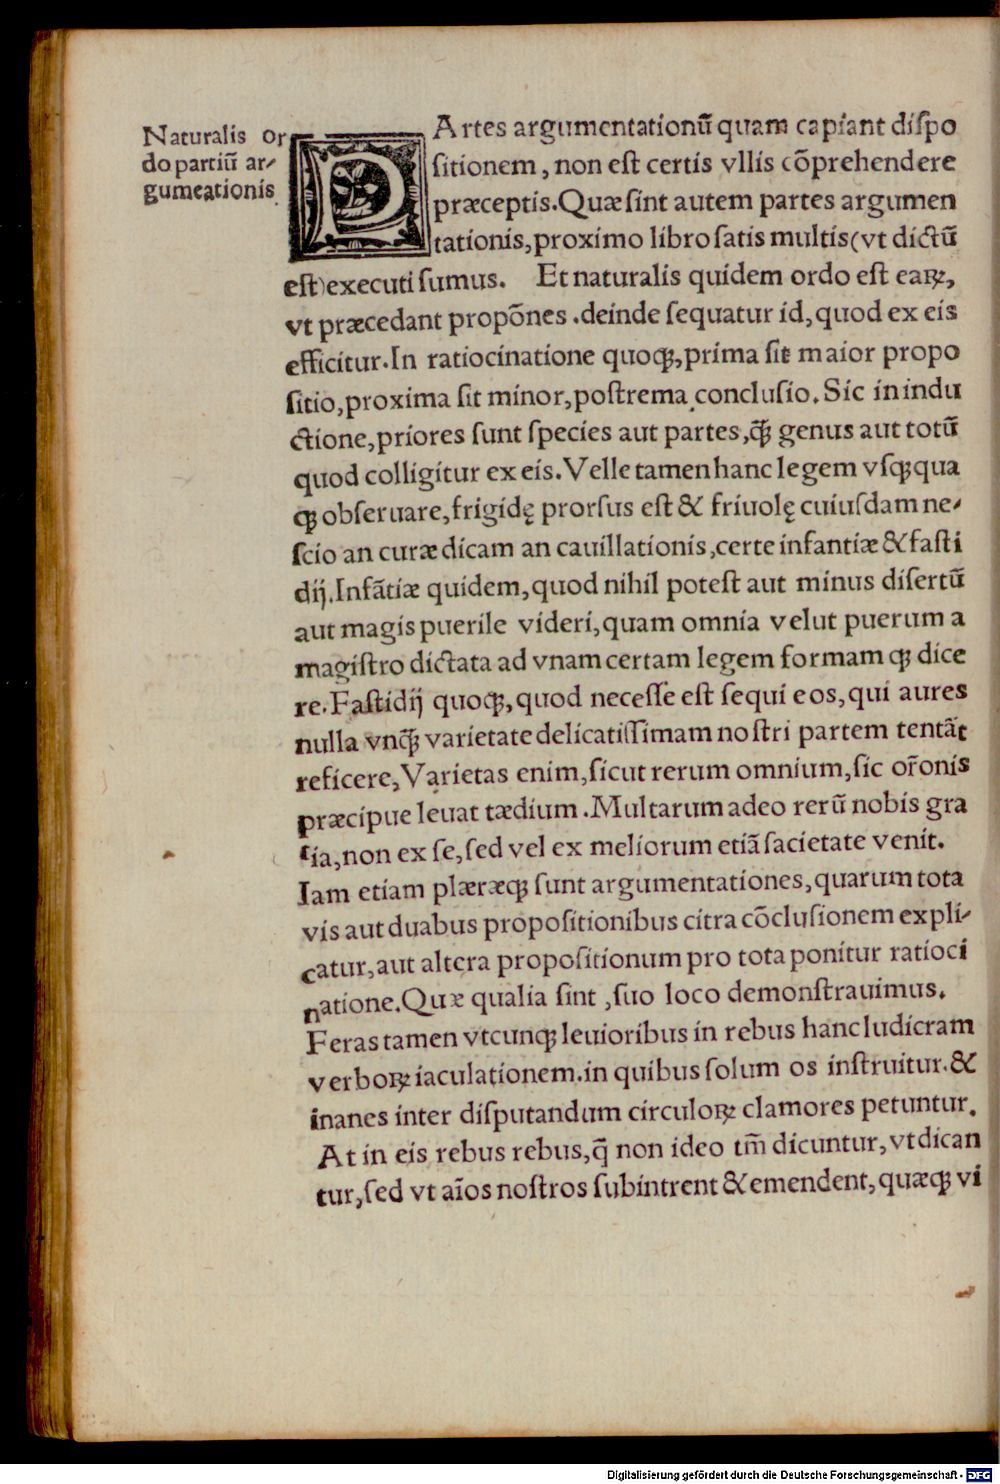 Naturalis or
do partiū ar-
gumeationis
PArtes argumentationū quam capiant dispo
sitionem, non est certis vllis cōprehendere
præceptis. Quæ sint autem partes argumen
tationis, proximo libro satis multis (vt dictū
est) executi sumus. Et naturalis quidem ordo est eaꝝ,
vt præcedant propōnes. deinde sequatur id, quod ex eis
efficitur. In ratiocinatione quoqꝫ, prima sit maior propo
sitio, proxima sit minor, postrema conclusio. Sic in indu
ctione, priores sunt species aut partes, qꝫ̃ genus aut totū
quod colligitur ex eis. Velle tamen hanc legem vsqꝫ qua
qꝫ obseruare, frigidę prorsus est & friuolę cuiusdam ne-
scio an curæ dicam an cauillationis, certe infantiæ & fasti
dij. Infātiæ quidem, quod nihil potest aut minus disertū
aut magis puerile videri, quam omnia velut puerum a
magistro dictata ad vnam certam legem formam qꝫ dice
re. Fastidij quoqꝫ, quod necesse est sequi eos, qui aures
nulla vnqꝫ̃ varietate delicatissimam nostri partem tentāt
reficere, Varietas enim, sicut rerum omnium, sic or̄onis
præcipue leuat tædium. Multarum adeo rerū nobis gra
tia, non ex se, sed vel ex meliorum etiā sacietate venit.
Iam etiam plæræqꝫ sunt argumentationes, quarum tota
vis aut duabus propositionibus citra cōclusionem expli-
catur, aut altera propositionum pro tota ponitur ratioci
natione. Quæ qualia sint, suo loco demonstrauimus.
Feras tamen vtcunqꝫ leuioribus in rebus hanc ludicram
verboꝝ iaculationem. in quibus solum os instruitur. &
inanes inter disputandum circuloꝝ clamores petuntur.
At in eis rebus rebus, q̄ non ideo tm̄ dicuntur, vt dican
tur, sed vt aīos nostros subintrent & emendent, quæqꝫ vi
Digitalisierung gefördert durch die Deutsche Forschungsgemeinschaft - DFG